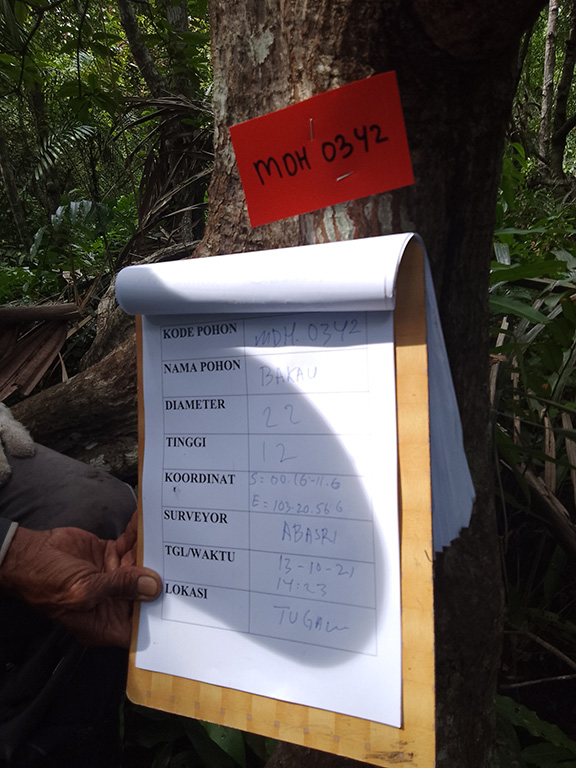 MDH 0342
KODE POHON MDH. 0342
NAMA POHON BAKAU
DIAMETER 22
TINGGI 12
KOORDINAT S = 00.16-11.6
E = 103-20.56 6
SURVEYOR ABASRI
TGL/WAKTU 13-10-21
14:23
LOKASI